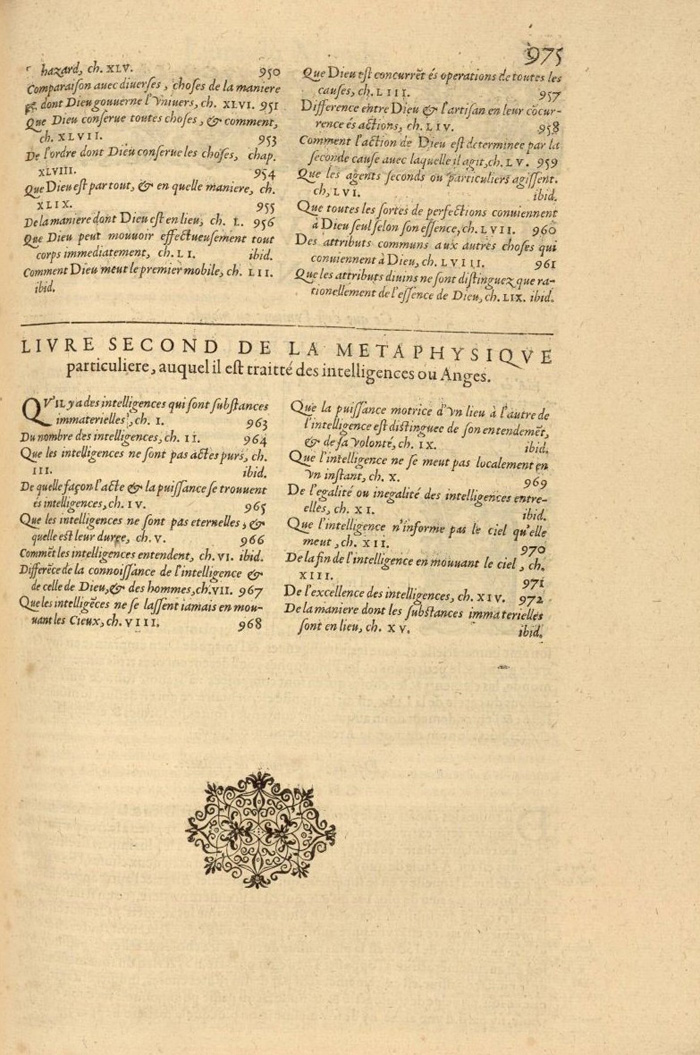 975
hazard, ch. XLV. 950
Comparaison auec diuerses, choses de la maniere
dont Dieu gouuerne l'Vniuers, ch. XLVI. 951
Que Dieu conserue toutes choses, & comment,
ch. XLVII. 953
De l'ordre dont Dieu conserue les choses, chap.
XLVIII. 954
Que Dieu est par tout, & en quelle maniere, ch.
XLIX. 955
De la maniere dont Dieu est en lieu, ch. L. 956
Que Dieu peut mouuoir effectueusement tout
corps immediatement, ch. LI. ibid.
Comment Dieu meut le premier mobile, ch. LII.
ibid.
Que Dieu est concurrēt és operations de toutes les
causes, ch. LIII. 957
Difference entre Dieu & l'artisan en leur cōcur-
rence és actions, ch. LIV. 958
Comment l'action de Dieu est determinee par la
seconde cause auec laquelle il agit, ch. LV. 959
Que les agents seconds ou particuliers agissent.
ch, LVI. ibid.
Que toutes les sortes de perfections conuiennent
à Dieu seul selon son essence, ch. LVII. 960
Des attributs communs aux autres choses qui
conuiennent à Dieu, ch. LVIII. 961
Que les attributs diuins ne sont distinguez que ra-
tionellement de l'essence de Dieu, ch. LIX. ibid.
LIVRE SECOND DE LA METAPHYSIQVE
particuliere, auquel il est traitté des intelligences ou Anges.
QV'IL y a des intelligences qui sont substances
immaterielles, ch. I. 963
Du nombre des intelligences, ch. II. 964
Que les intelligences ne sont pas actes purs, ch.
III. ibid.
De quelle façon l'acte & la puissance se trouuent
és intelligences, ch. IV. 965
Que les intelligences ne sont pas eternelles, &
quelle est leur duree, ch. V. 966
Commēt les intelligences entendent, ch. VI. ibid.
Differēce de la connoissance de l'intelligence &
de celle de Dieu, & des hommes, ch. VII. 967
Que les intelligēces ne se lassent iamais en mou-
uant les Cieux, ch. VIII. 968
Que la puissance motrice d'vn lieu à l'autre de
l'intelligence est distinguee de son entendemēt,
& de sa volonté, ch. IX. ibid.
Que l'intelligence ne se meut pas localement en
vn instant, ch. X. 969
De l'egalité ou inegalité des intelligences entre-
elles, ch. XI. ibid.
Que l'intelligence n'informe pas le ciel qu'elle
meut, ch. XII. 970
De la fin de l'intelligence en mouuant le ciel, ch.
XIII. 971
De l'excellence des intelligences, ch. XIV. 972
De la maniere dont les substances immaterielles
sont en lieu, ch. XV. ibid.